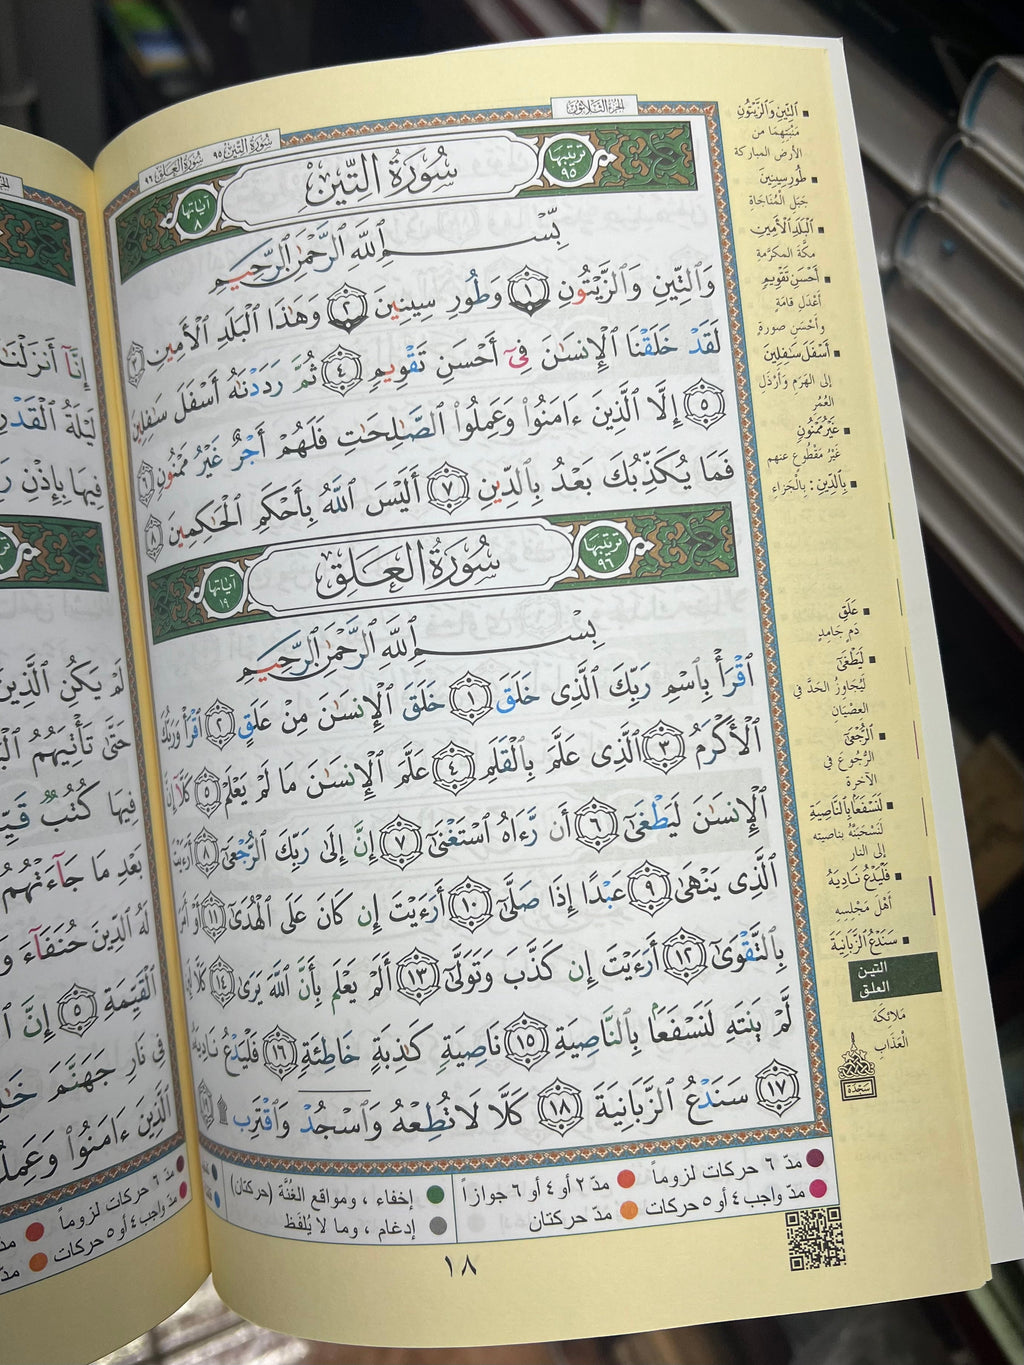 الجزء الثلاثون
سورة التين ٩٥ سورة العلق ٩٦
ترتيبها ٩٥
سُورَةُ التِّينِ
آياتها ٨
بِسْمِ ٱللَّهِ ٱلرَّحْمَٰنِ ٱلرَّحِيمِ
وَٱلتِّينِ وَٱلزَّيْتُونِ ١ وَطُورِ سِينِينَ ٢ وَهَٰذَا ٱلْبَلَدِ ٱلْأَمِينِ ٣
لَقَدْ خَلَقْنَا ٱلْإِنسَٰنَ فِىٓ أَحْسَنِ تَقْوِيمٍ ٤ ثُمَّ رَدَدْنَٰهُ أَسْفَلَ سَٰفِلِينَ
٥ إِلَّا ٱلَّذِينَ ءَامَنُوا۟ وَعَمِلُوا۟ ٱلصَّٰلِحَٰتِ فَلَهُمْ أَجْرٌ غَيْرُ مَمْنُونٍ ٦
فَمَا يُكَذِّبُكَ بَعْدُ بِٱلدِّينِ ٧ أَلَيْسَ ٱللَّهُ بِأَحْكَمِ ٱلْحَٰكِمِينَ ٨
ترتيبها ٩٦
سُورَةُ العَلَقِ
آياتها ١٩
بِسْمِ ٱللَّهِ ٱلرَّحْمَٰنِ ٱلرَّحِيمِ
ٱقْرَأْ بِٱسْمِ رَبِّكَ ٱلَّذِى خَلَقَ ١ خَلَقَ ٱلْإِنسَٰنَ مِنْ عَلَقٍ ٢ ٱقْرَأْ وَرَبُّكَ
ٱلْأَكْرَمُ ٣ ٱلَّذِى عَلَّمَ بِٱلْقَلَمِ ٤ عَلَّمَ ٱلْإِنسَٰنَ مَا لَمْ يَعْلَمْ ٥ كَلَّآ إِنَّ
ٱلْإِنسَٰنَ لَيَطْغَىٰٓ ٦ أَن رَّءَاهُ ٱسْتَغْنَىٰٓ ٧ إِنَّ إِلَىٰ رَبِّكَ ٱلرُّجْعَىٰٓ ٨ أَرَءَيْتَ
ٱلَّذِى يَنْهَىٰ ٩ عَبْدًا إِذَا صَلَّىٰٓ ١٠ أَرَءَيْتَ إِن كَانَ عَلَى ٱلْهُدَىٰٓ ١١ أَوْ أَمَرَ
بِٱلتَّقْوَىٰٓ ١٢ أَرَءَيْتَ إِن كَذَّبَ وَتَوَلَّىٰٓ ١٣ أَلَمْ يَعْلَم بِأَنَّ ٱللَّهَ يَرَىٰ ١٤ كَلَّا لَئِن
لَّمْ يَنتَهِ لَنَسْفَعًۢا بِٱلنَّاصِيَةِ ١٥ نَاصِيَةٍ كَٰذِبَةٍ خَاطِئَةٍ ١٦ فَلْيَدْعُ نَادِيَهُۥ
١٧ سَنَدْعُ ٱلزَّبَانِيَةَ ١٨ كَلَّا لَا تُطِعْهُ وَٱسْجُدْ وَٱقْتَرِب ۩
■ ٱلتِّينِ وَٱلزَّيْتُونِ
مَنْبَتِهِمَا من
الأرض المباركة
■ طُورِ سِينِينَ
جَبَلِ الْمُنَاجَاةِ
■ ٱلْبَلَدِ ٱلْأَمِينِ
مَكَّةَ المكرَّمةِ
■ أَحْسَنِ تَقْوِيمٍ
أَعْدَلِ قامَةٍ
وأحْسَنِ صورةٍ
■ أَسْفَلَ سَٰفِلِينَ
إلى الهَرَمِ وأَرْذَلِ
العُمُرِ
■ غَيْرُ مَمْنُونٍ
غَيْرُ مَقْطُوعٍ عنهم
■ بِٱلدِّينِ: بالْجَزاءِ
■ عَلَقٍ
دَمٍ جَامِدٍ
■ لَيَطْغَىٰٓ
لَيُجاوِزُ الحَدَّ في
العِصْيَانِ
■ ٱلرُّجْعَىٰٓ
الرُّجُوعَ في
الآخرة
■ لَنَسْفَعًۢا بِٱلنَّاصِيَةِ
لَنَسْحَبَنَّهُ بِناصيته
إلى النار
■ فَلْيَدْعُ نَادِيَهُۥ
أَهْلَ مَجْلِسِهِ
■ سَنَدْعُ ٱلزَّبَانِيَةَ
التين
العلق
مَلائكةَ
الْعَذَابِ
سَجْدَة
مدّ ٦ حركات لزوماً
مدّ ٢ أو ٤ أو ٦ جوازاً
مدّ واجب ٤ أو ٥ حركات
مدّ حركتان
إخفاء، ومواقع الغُنَّة (حركتان)
إدغام، وما لا يُلفَظ
١٨
إِنَّآ أَنزَلْنَا
لَيْلَةُ ٱلْقَدْرِ
فِيهَا بِإِذْنِ
لَمْ يَكُنِ ٱلَّذِينَ
حَتَّىٰ تَأْتِيَهُمُ
فِيهَا كُتُبٌ
بَعْدِ مَا جَآءَتْهُمُ
لَهُ ٱلدِّينَ حُنَفَآءَ
ٱلْقَيِّمَةِ ٥ إِنَّ
فِى نَارِ جَهَنَّمَ
ٱلَّذِينَ ءَامَنُوا۟
مدّ ٦ حركات لزوماً
مدّ واجب ٤ أو ٥ حركات